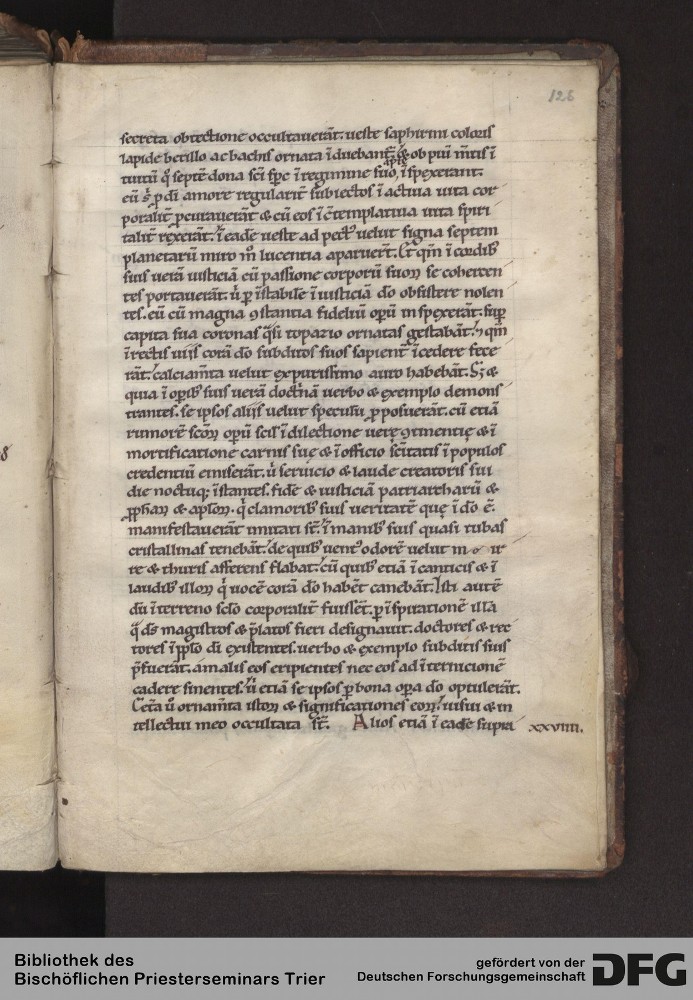 126
secreta obtectione occultauerāt. ueste saphirini coloris
lapide berillo ac bachis ornata īduebant᷒. & ob piū m̄tis ī
tuitū q̊ septē dona sc̄i sp̄c ī regimine suo, īspexerant.
cū s᷒ p̱ di amore regularit᷒ subiectos ī actiua uita cor
poralit᷒ p̱curauerāt & cū eos ī c̄templatiua uita spiri
talit᷒ rexerāt. ī eadē ueste ad pect᷒ velut signa septem
planetarū miro m̊ lucentia aparuert̄. Et qm̄ ī cordib᷒
suis uerā iusticiā cū passione corporū suoꝝ se coherten
tes portauerāt. ꝑ īstabilē īiusticiā dō obsistere nolen
tes. eū cū magna ꝯstantia fideliū operū inspexerāt. sup̱
capita sua coronas q̄si topazio ornatas gestabāt. ⁊ qm̄
ī rectis uiis corā dō subditos suos sapient᷒ īcedere fece
rāt. calciam̄ta velut ex purissimo auro habebāt. Sꝫ &
quia ī operib᷒ suis uerā doctⁱnā verbo & exemplo demons
trantes. se ipsos aliis velut speculū p̱posuerāt. cū etiā
rumorē sc̄oꝝ operū scil᷒ ī dilectione uerę ꝯtinentię & ī
mortificatione carnis suę & ī officio sc̄itatis ī populos
credentiū emiserāt. ū seruicio & laude creatoris sui
die noctuq; īstantes. fidē & iusticiā patriarcharū &
ꝓphaꝝ & aplōꝝ. q̇ clamorib᷒ suis ueritatē quę ī dō ē.
manifestauerāt imitati sf̄. ī manib᷒ suis quasi tubas
cristallinas tenebāt. de quib᷒ uent᷒ odorē velut mirr
re & thuris afferens flabat. cū quib᷒ etiā ī canticis & ī
laudib᷒ illoꝝ q̇ uocē corā dō habēt canebāt. Isti autē
dū ī terreno sclō corporalit᷒ fuissēt. ꝑ īspirationē illā
q̄ ds̄ magistros & p̄latos fieri designauit. doctores & rec
tores ī pplō di existentes. uerbo & exemplo subditis suis
p̄fuerāt. a malis eos eripientes nec eos ad īternicionē
cadere sinentes. ū etiā se ipsos ꝑ bona opa dō optulerāt.
Cet̄a ū ornam̄ta istoꝝ & significationes eoꝝ. uisui & in
tellectui meo occultata sf̄. Alios etiā ī eadē supra xxviiii.
8
Bibliothek des
Bischöflichen Priesterseminars Trier
gefördert von der
Deutschen Forschungsgemeinschaft
DFG